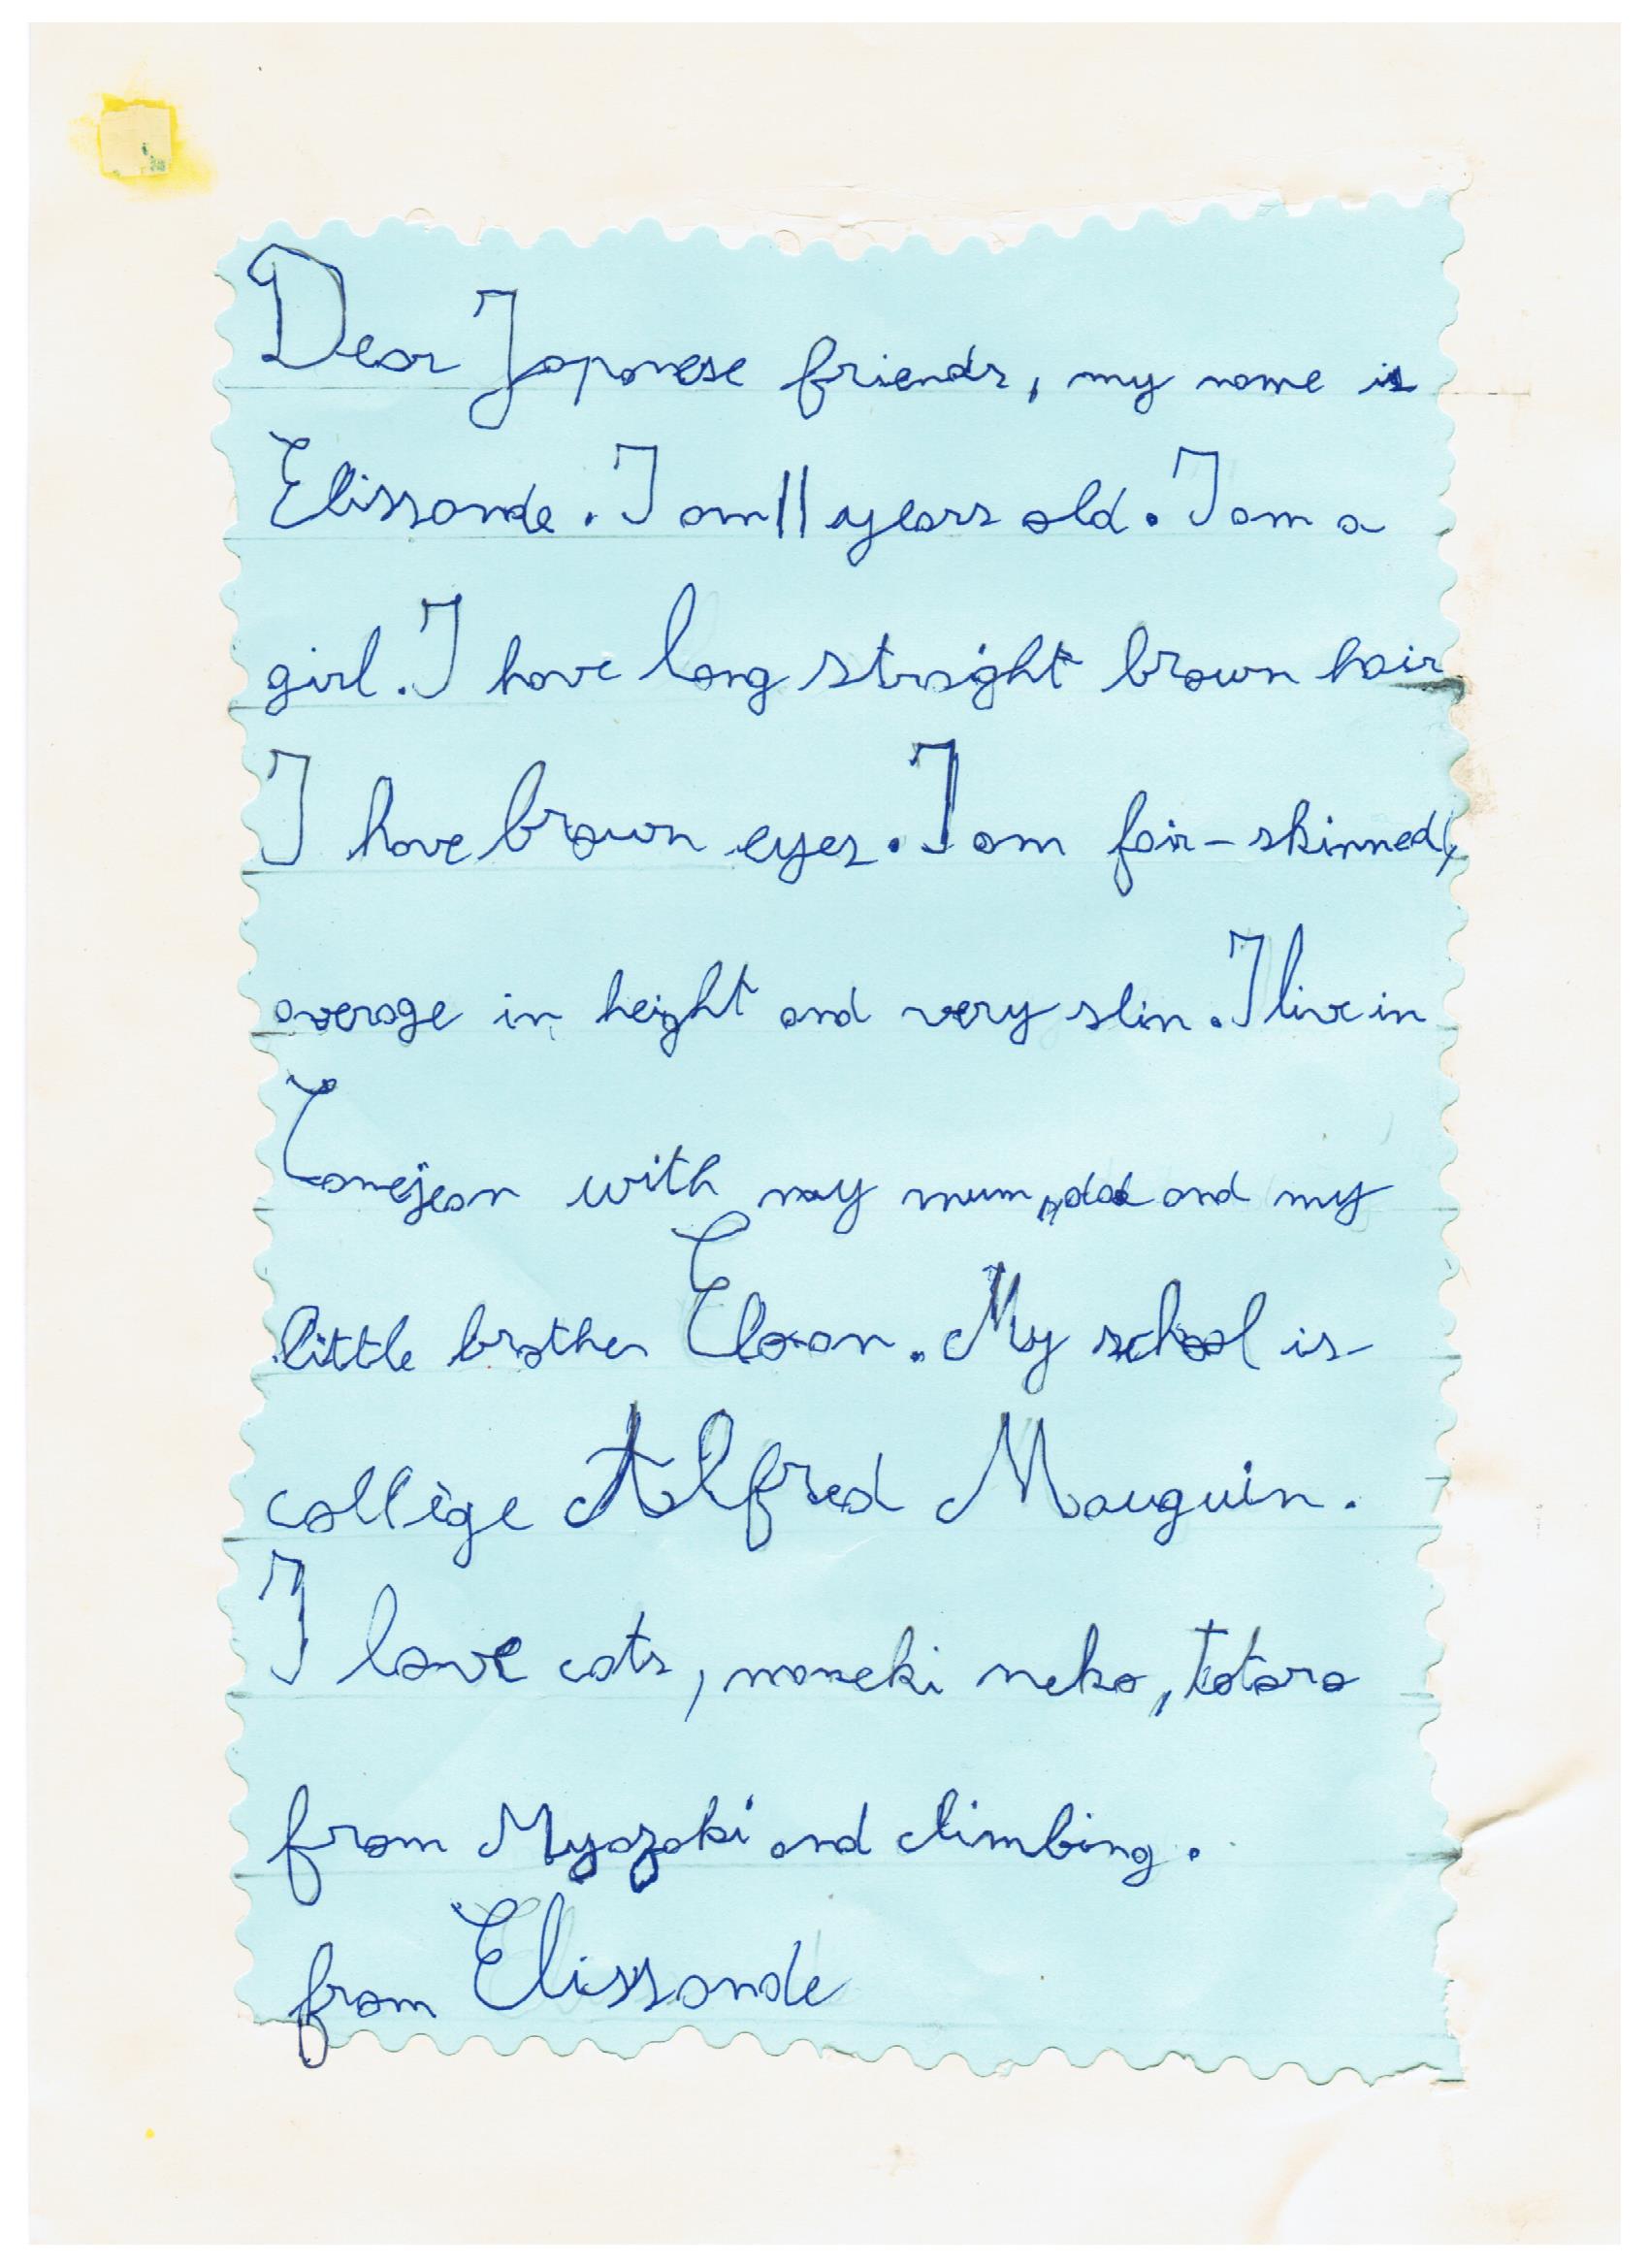 Dear Japanese friends, my name is
Elissande. I am 11 years old. I am a
girl. I have long straight brown hair
I have brown eyes. I am fair-skinned,
average in height and very slin. I live in
with my mum, dad and my
little brother Eloan. My school is
collège Alfred Mauguin.
I love cats, maneki neko, totoro
from Myazaki and climbing.
from Elissande